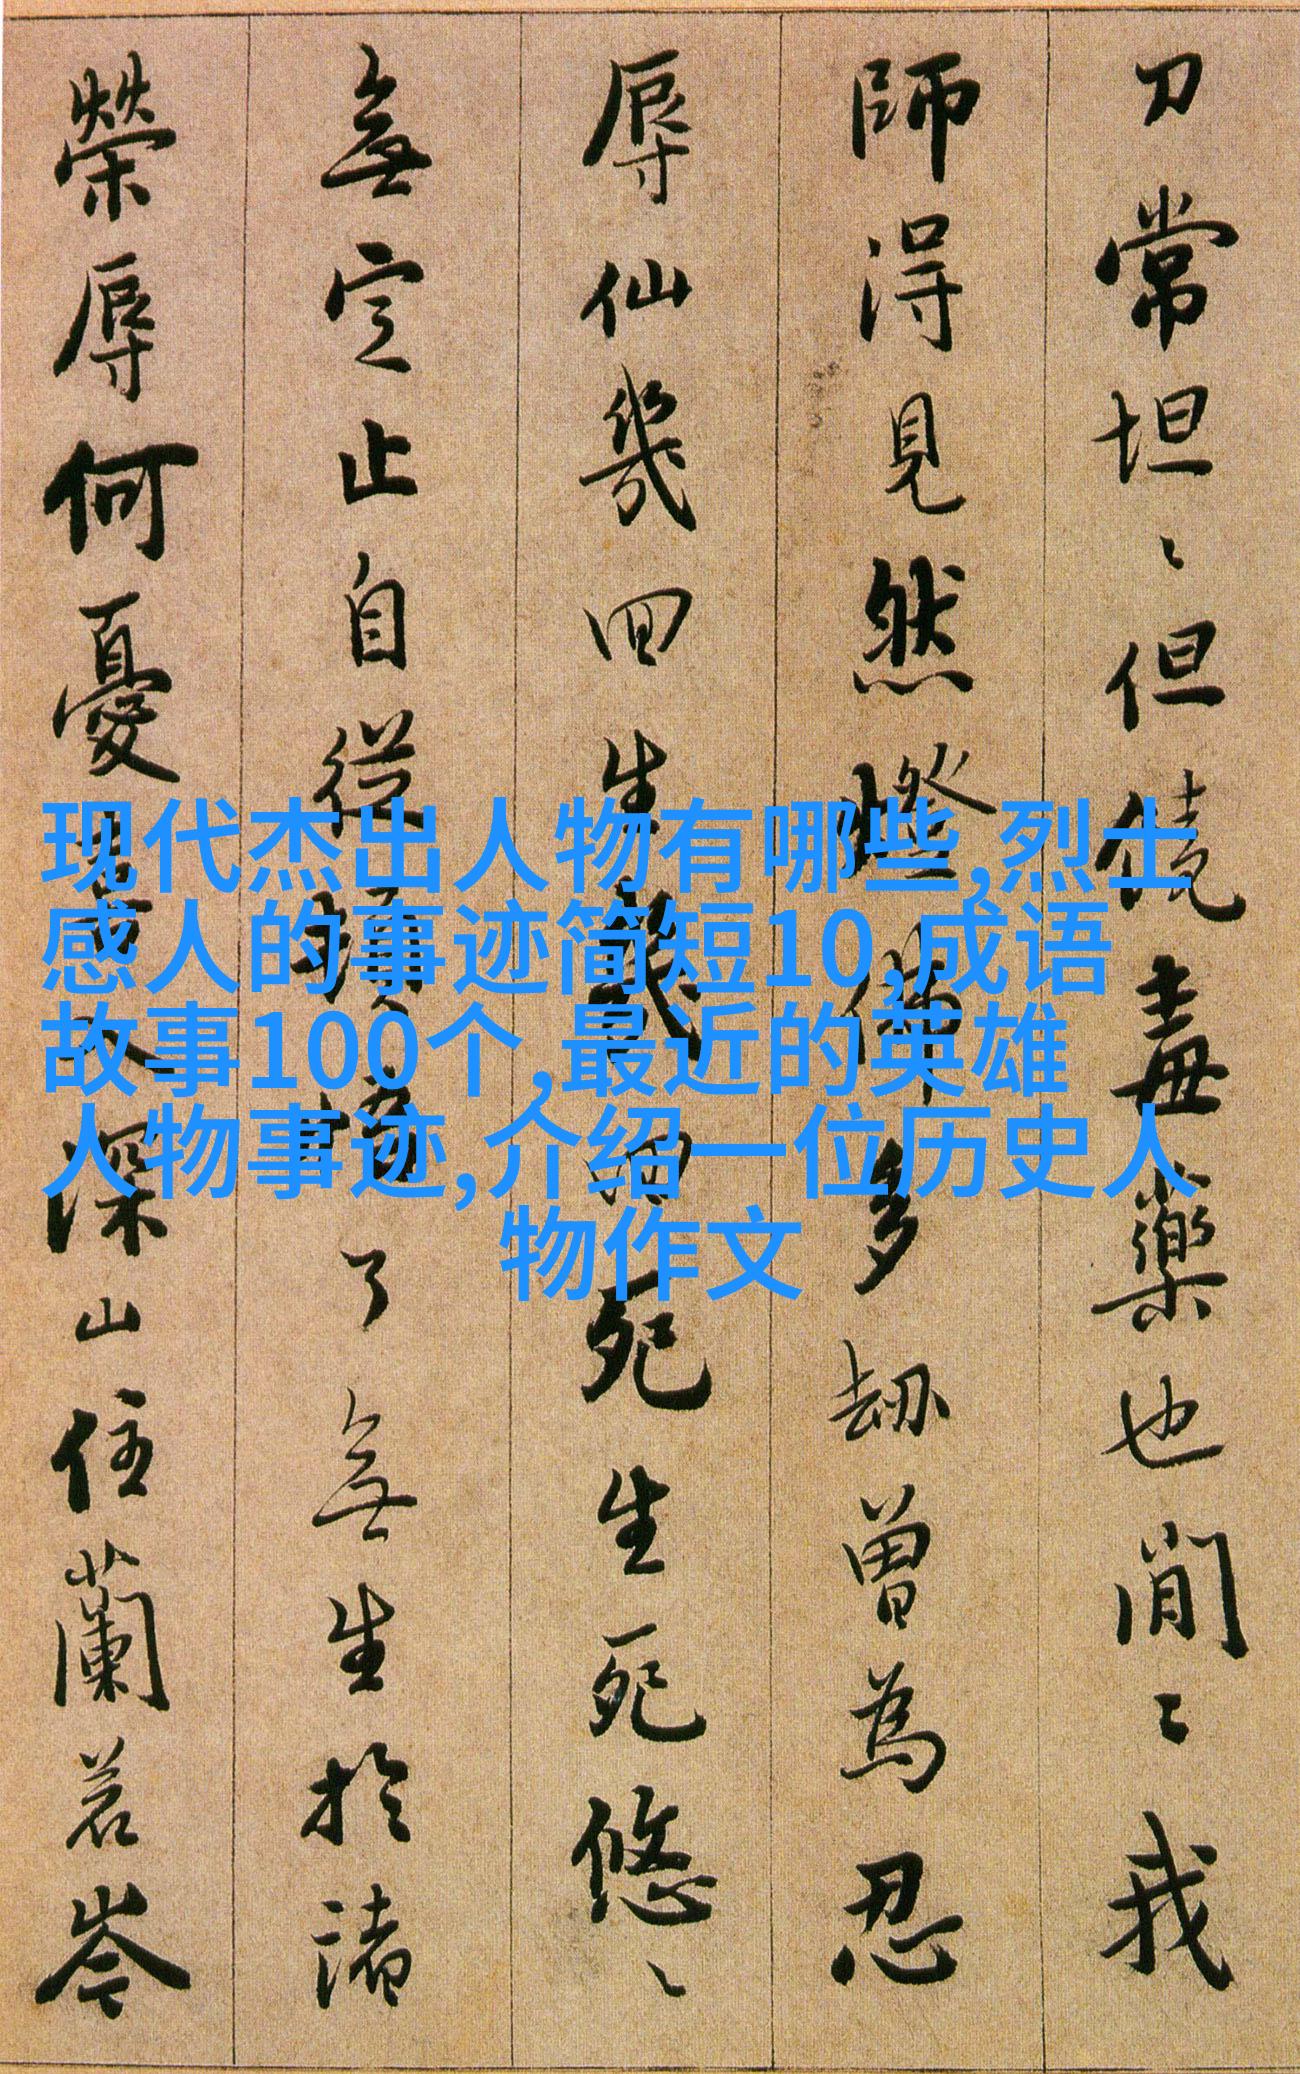 刀常坦〻但饒毒藥也閒〻我
師得見然燈佛多劫曾為忍
辱仙幾回生幾回死生死悠〻
無定止自從頓悟了無生於諸
榮辱何憂喜入深山住蘭若岑
现代杰出人物有哪些,烈士
感人的事迹简短10,成语
故事100个,最近的英雄
人物事迹,介绍一位历史人
物作文